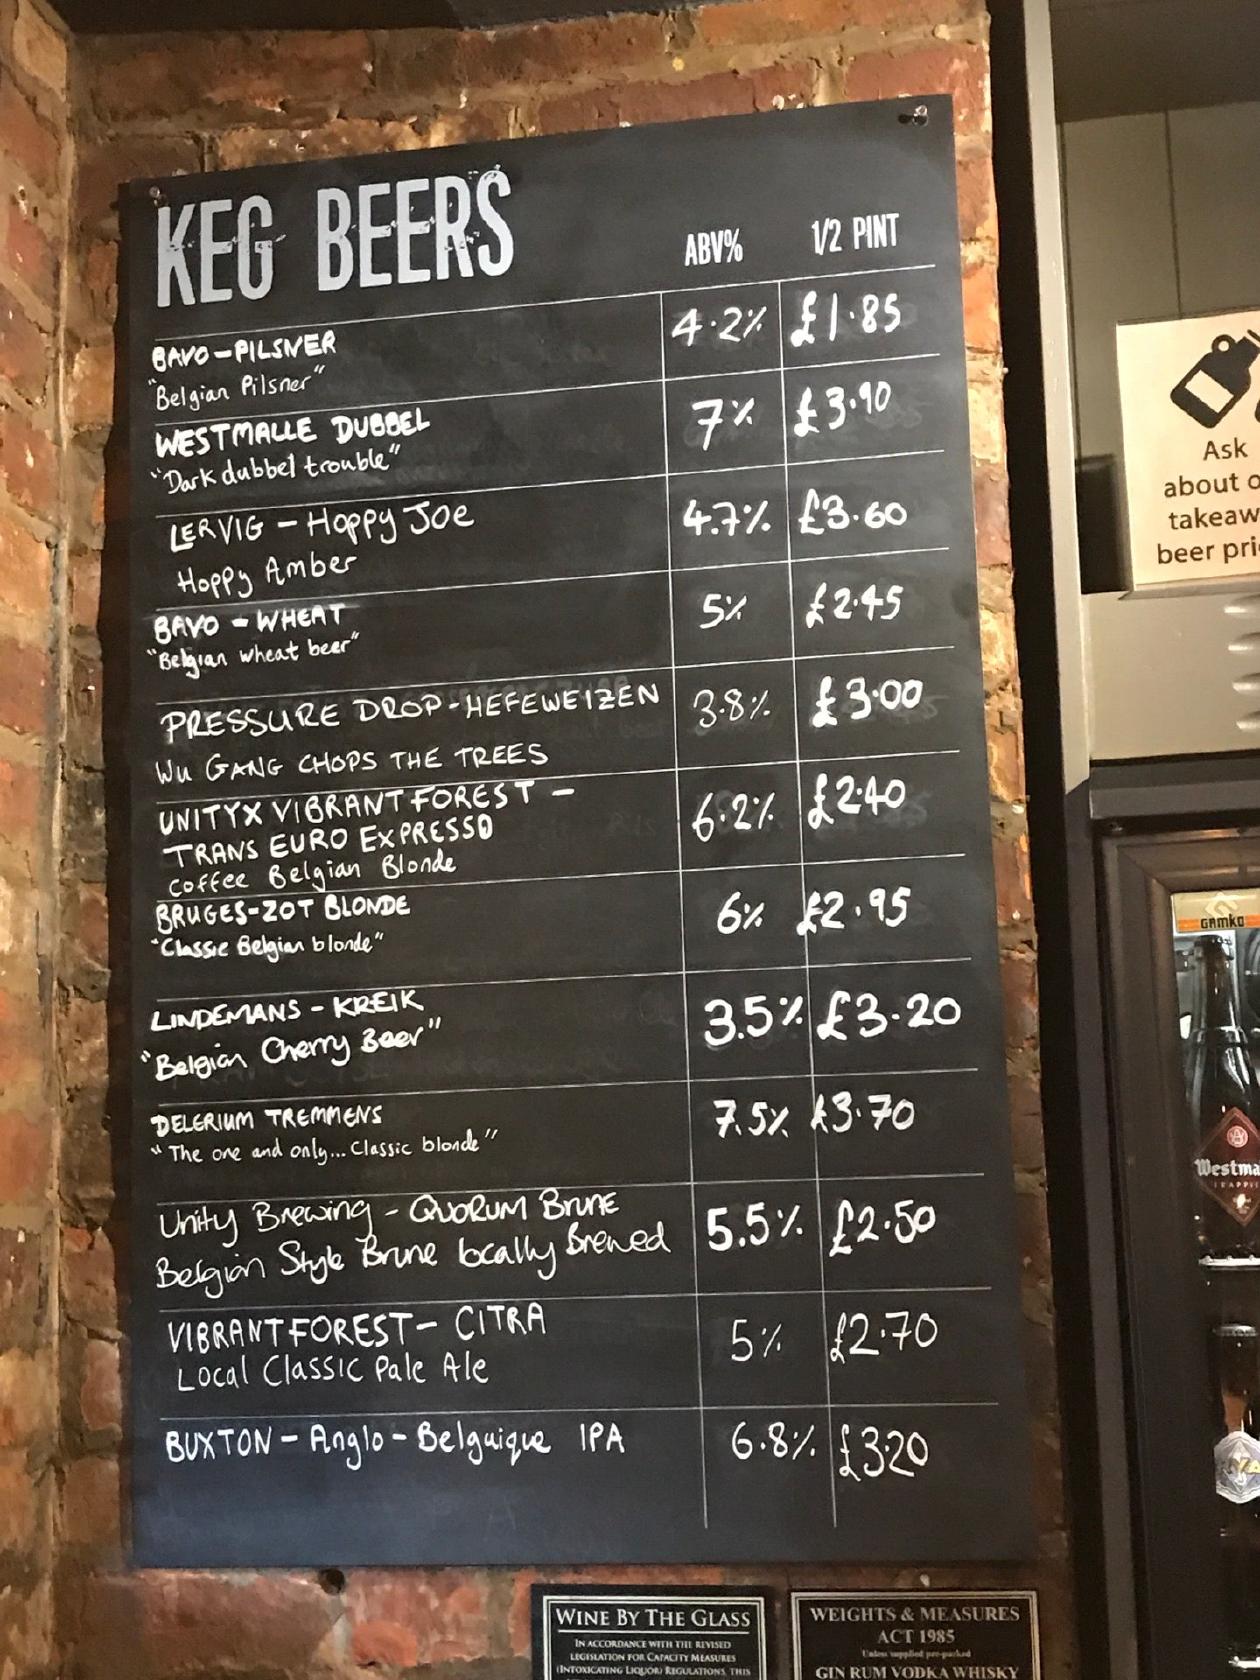 KEG BEERS
ABV% 1/2 PINT
BAVO - PILSNER 4.2% £1.85
"Belgian Pilsner"
WESTMALLE DUBBEL 7% £3.90
"Dark dubbel trouble"
LERVIG - Hoppy Joe 4.7% £3.60
Hoppy Amber
BAVO - WHEAT 5% £2.45
"Belgian wheat beer"
PRESSURE DROP - HEFEWEIZEN 3.8% £3.00
WU GANG CHOPS THE TREES
UNITY X VIBRANT FOREST - 6.2% £2.40
TRANS EURO EXPRESSO
Coffee Belgian Blonde
BRUGES-ZOT BLONDE 6% £2.95
"Classic Belgian blonde"
LINDEMANS - KREIK 3.5% £3.20
"Belgian Cherry Beer"
DELERIUM TREMMENS 7.5% £3.70
"The one and only... Classic blonde"
Unity Brewing - QUORUM BRUNE 5.5% £2.50
Belgian Style Brune locally Brewed
VIBRANT FOREST - CITRA 5% £2.70
Local Classic Pale Ale
BUXTON - Anglo - Belguique IPA 6.8% £3.20
Ask
about o
takeaw
beer pri
GAMKO
Westma
TRAPPI
WINE BY THE GLASS
IN ACCORDANCE WITH THE REVISED
LEGISLATION FOR CAPACITY MEASURES
(INTOXICATING LIQUOR) REGULATIONS, THIS
WEIGHTS & MEASURES
ACT 1985
Unless supplied pre-packed
GIN RUM VODKA WHISKY